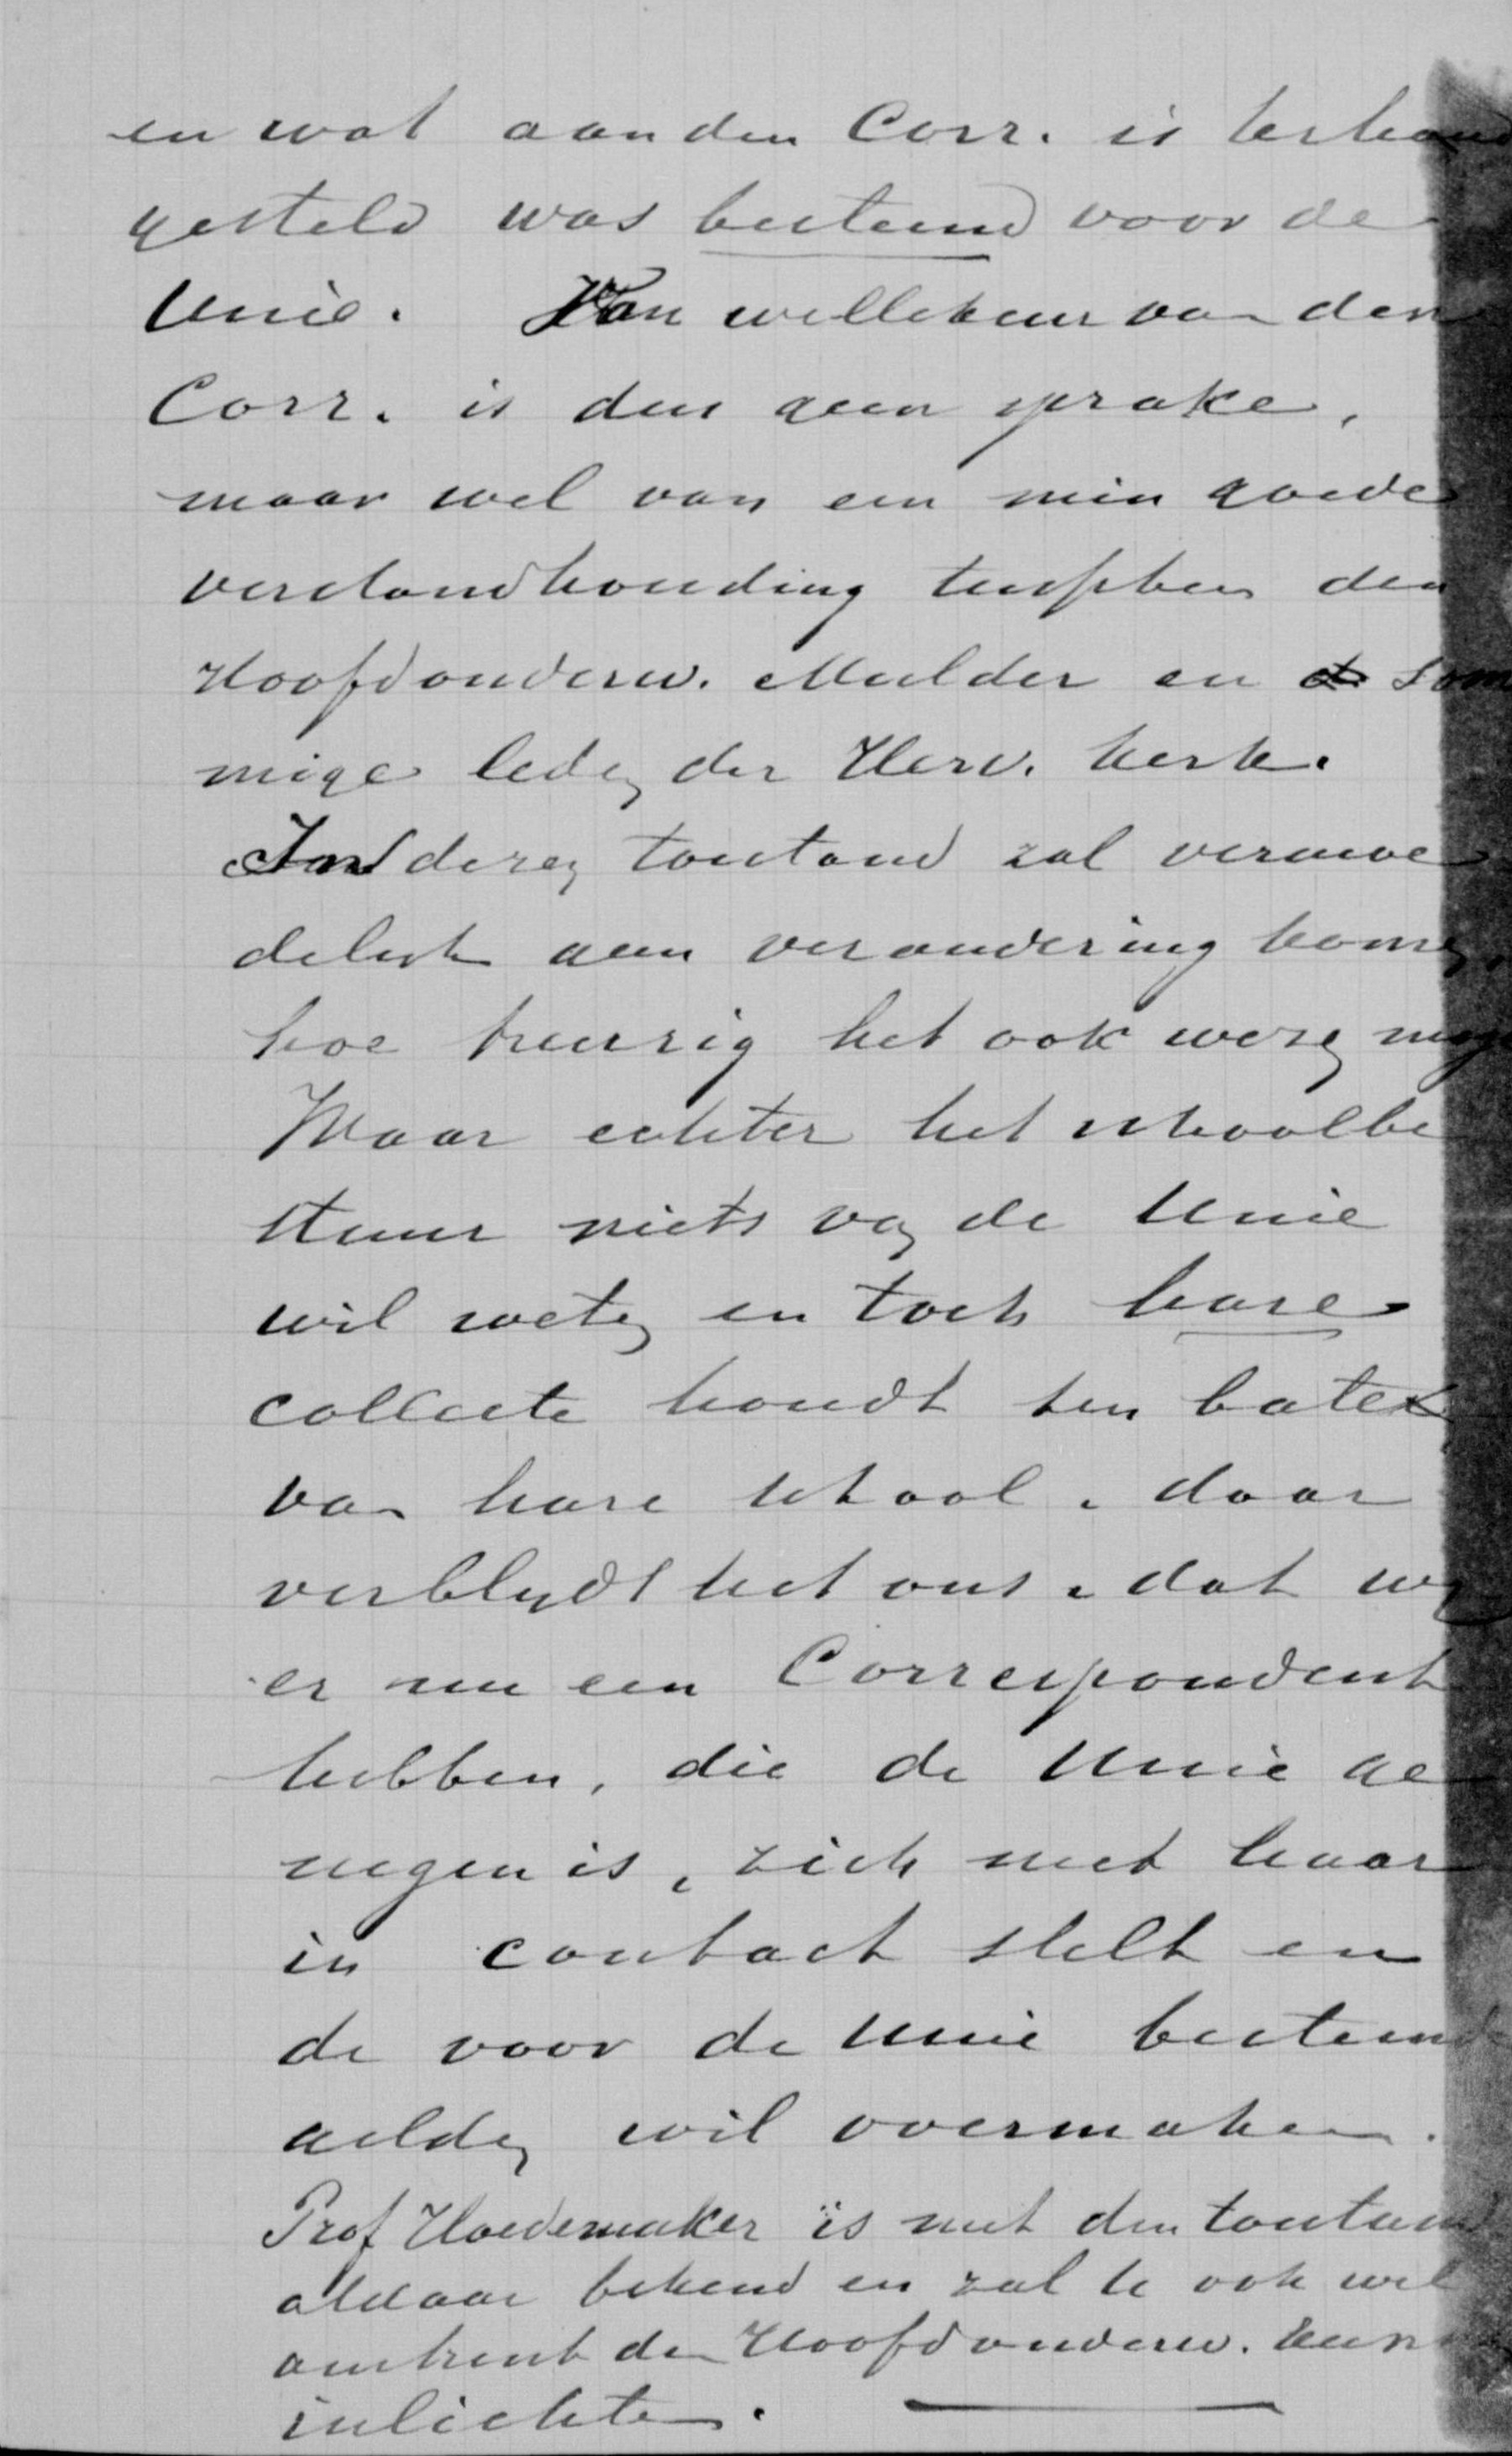 en wat aan den Corr. is terhand
gesteld was bestemd voor de
Unie. Van willekeur van den
Corr. is dus geen sprake,
maar wel van een min goede
verstandhouding tusschen den
Hoofdonderw. Mulder en som
mige leden der Herv. kerk.
In dezen toestand zal vermoe
delijk geen verandering komen,
hoe treurig het ook wezen moge
Waar echter het schoolbe
stuur niets van de Unie
wil weten en toch hare
collecte houdt ten bate
van hare school, daar
verblijdt het ons, dat wij
er nu een Correspondent
hebben, die de Unie ge
negen is, zich met haar
in contact stelt en
de voor de Unie bestemde
gelden wil overmaken.
Prof Hoedemaker is met den toestand
aldaar bekend en zal U ook wel
omtrent den Hoofdonderw. kunnen
inlichten.